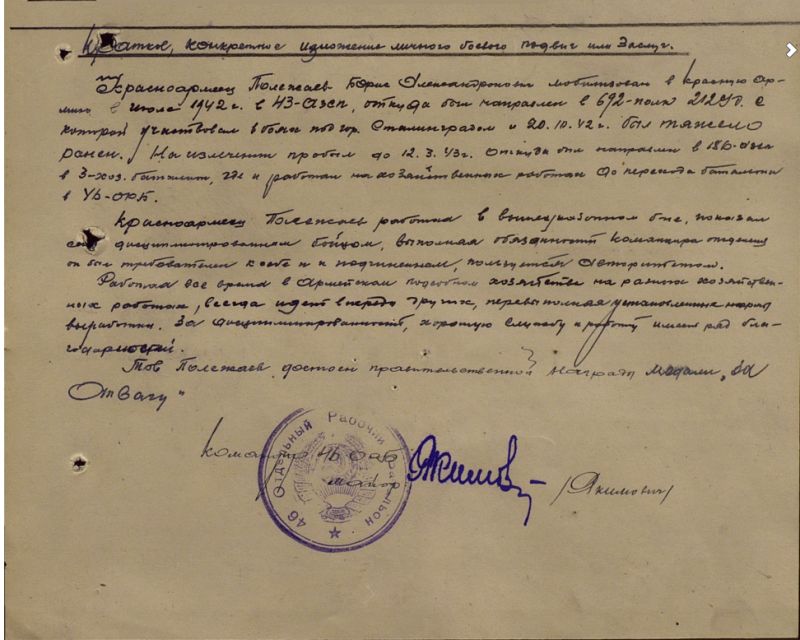 Краткое, конкретное изложение личного боевого подвига или заслуг.
Красноармеец Полежаев Борис Александрович мобилизован в красную ар-
мию в июле 1942 г. в 43-АЗСП, откуда был направлен в 692-полк 212 с
которой участвовал в боях под гор. Сталинградом и 20.10.42 г. был тяжело
ранен. На излечении пробыл до 12.3.43г. откуда был направлен в 186-
в 3-хоз. батальон, где и работал на хозяйственных работах до перехода батальона
в 46-ОРБ.
Красноармеец Полежаев работая в вышеуказанном б-не, показал
себя дисциплинированным бойцом, выполняя обязанности командира отделения
он был требователен к себе и к подчиненным, пользуется авторитетом.
Работая все время в Армейском подсобном хозяйстве на разных хозяйствен-
ных работах, всегда идет впереди других, перевыполняя установленные нормы
выработки. За дисциплинированность, хорошую службу и работу имеет ряд бла-
годарностей.
Тов Полежаев достоен правительственной награды медали „За
Отвагу"
Командир 46 ОРБ
майор
/Якимович/
46 Отдельный Рабочий Батальон